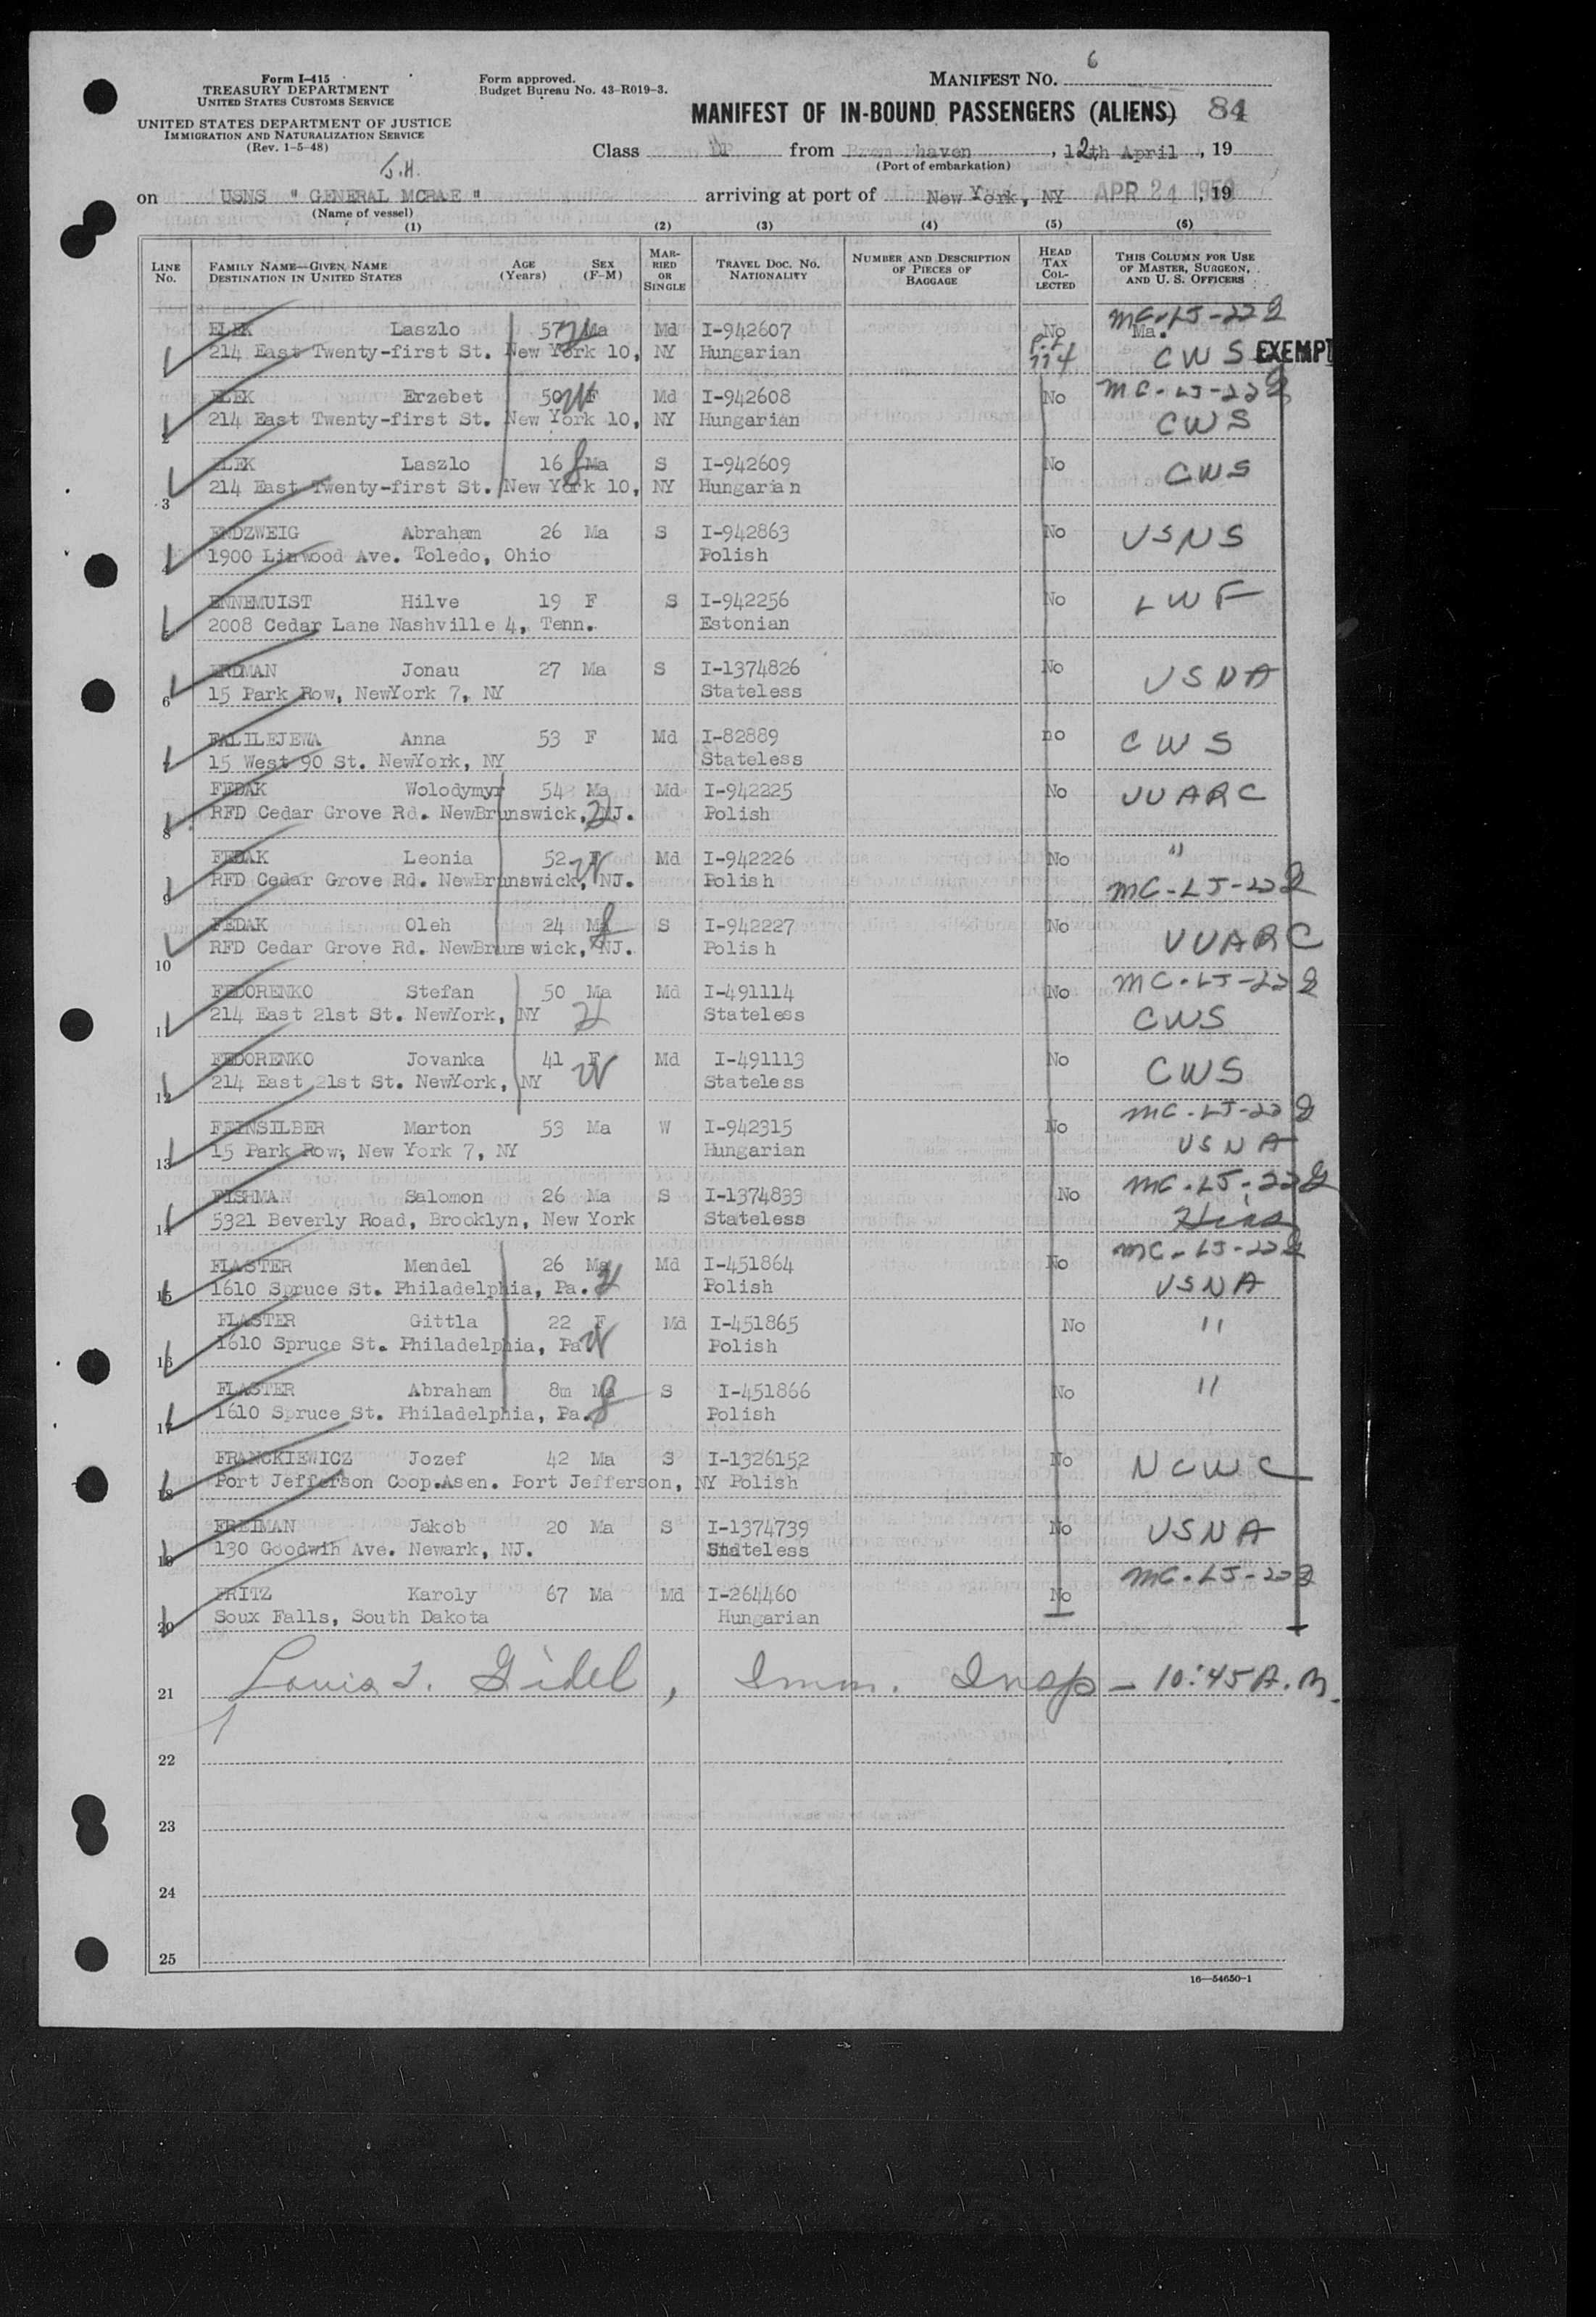 Form I-415
TREASURY DEPARTMENT
UNITED STATES CUSTOMS SERVICE
UNITED STATES DEPARTMENT OF JUSTICE
IMMIGRATION AND NATURALIZATION SERVICE
(Rev. 1-5-48)
Form approved.
Budget Bureau No. 43-R019-3.
MANIFEST NO. 6
MANIFEST OF IN-BOUND PASSENGERS (ALIENS) 84
Class DP from haven, 12th April, 19
(Port of embarkation)
J.H.
on USNS "GENERAL MCRAE" arriving at port of New York, NY APR 24 , 19
(Name of vessel)
(1) (2) (3) (4) (5) (6)
LINE NO. FAMILY NAME—GIVEN NAME DESTINATION IN UNITED STATES AGE (Years) SEX (F-M) MARRIED OR SINGLE TRAVEL DOC. NO. NATIONALITY NUMBER AND DESCRIPTION OF PIECES OF BAGGAGE HEAD TAX COLLECTED THIS COLUMN FOR USE OF MASTER, SURGEON, AND U. S. OFFICERS
ELEK Laszlo 57 Ma Md I-942607 No Ma. MC-LJ-22
214 East Twenty-first St. New York 10, NY Hungarian 114 CWS EXEMPT
ELEK Erzebet 50 F Md I-942608 No MC-LJ-22
2 214 East Twenty-first St. New York 10, NY Hungarian CWS
ELEK Laszlo 16 Ma S I-942609 No CWS
3 214 East Twenty-first St. New York 10, NY Hungarian
ENDZWEIG Abraham 26 Ma S I-942863 No USNS
1900 Linwood Ave. Toledo, Ohio Polish
ENNEMUIST Hilve 19 F S I-942256 No LWF
2008 Cedar Lane Nashville 4, Tenn. Estonian
ERDMAN Jonau 27 Ma S I-1374826 No USNA
6 15 Park Row, NewYork 7, NY Stateless
FALILEJEWA Anna 53 F Md I-82889 no CWS
15 West 90 St. NewYork, NY Stateless
FEDAK Wolodymyr 54 Ma Md I-942225 No UUARC
8 RFD Cedar Grove Rd. NewBrunswick, NJ. Polish
FEDAK Leonia 52 F Md I-942226 No "
9 RFD Cedar Grove Rd. NewBrunswick, NJ. Polish MC-LJ-22
FEDAK Oleh 24 Ma S I-942227 No UUARC
10 RFD Cedar Grove Rd. NewBrunswick, NJ. Polish
FEDORENKO Stefan 50 Ma Md I-491114 No MC-LJ-22
11 214 East 21st St. NewYork, NY Stateless CWS
FEDORENKO Jovanka 41 F Md I-491113 No CWS
12 214 East 21st St. NewYork, NY Stateless
FEINSILBER Marton 53 Ma W I-942315 No MC-LJ-22
13 15 Park Row, New York 7, NY Hungarian USNA
FISHMAN Salomon 26 Ma S I-1374833 No MC-LJ-22
14 5321 Beverly Road, Brooklyn, New York Stateless Hias
FLASTER Mendel 26 Ma Md I-451864 No MC-LJ-22
15 1610 Spruce St. Philadelphia, Pa. Polish USNA
FLASTER Gittla 22 F Md I-451865 No "
16 1610 Spruce St. Philadelphia, Pa Polish
FLASTER Abraham 8m Ma S I-451866 No "
17 1610 Spruce St. Philadelphia, Pa. Polish
FRANCKIEWICZ Jozef 42 Ma S I-1326152 No NCWC
18 Port Jefferson Coop.Asen. Port Jefferson, NY Polish
FREIMAN Jakob 20 Ma S I-1374739 No USNA
19 130 Goodwin Ave. Newark, NJ. Stateless
FRITZ Karoly 67 Ma Md I-264460 No MC-LJ-22
20 Soux Falls, South Dakota Hungarian
21 Louis J. Gidel, Imm. Insp - 10:45 A.M.
22
23
24
25
16—54650-1